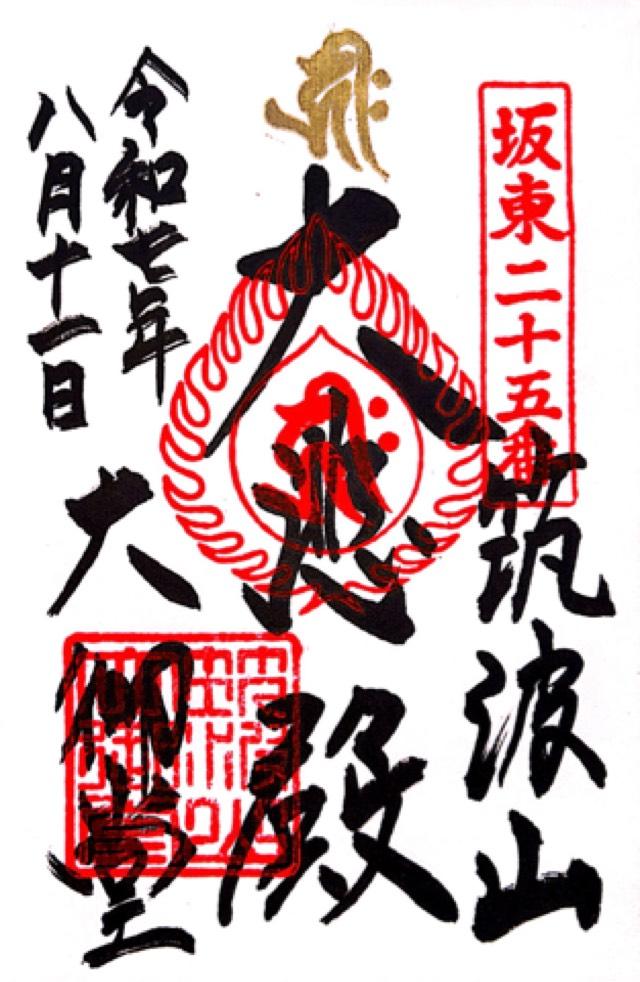 坂東二十五番
筑波山
𑖮𑖿𑖨𑖱𑖾
大悲殿
令和七年
八月十一日
大御堂